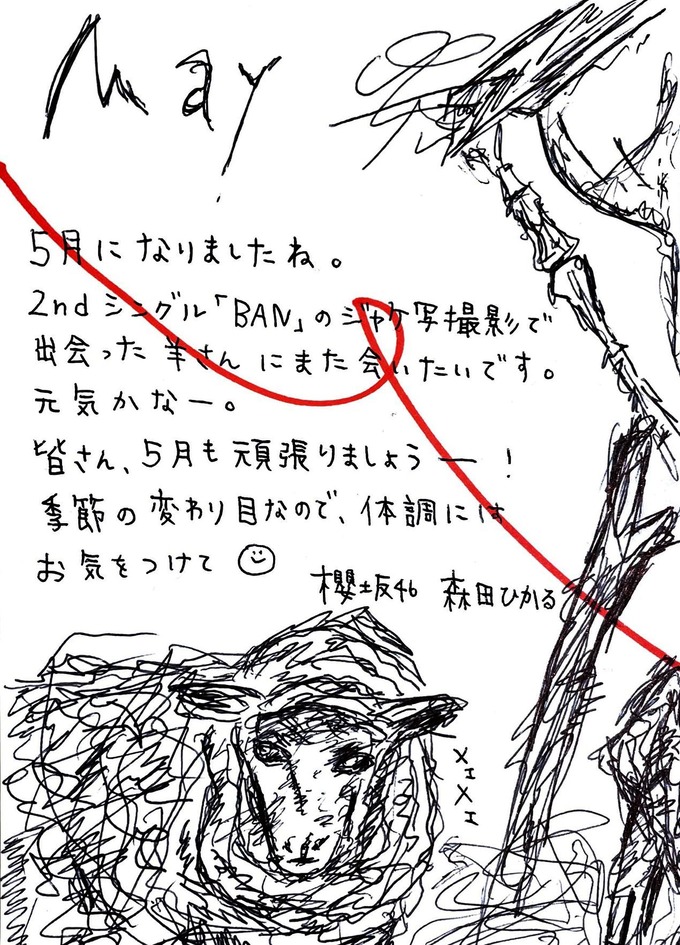 May
5月になりましたね。
2ndシングル「BAN」のジャケ写撮影で
出会った羊さんにまた会いたいです。
元気かなー。
皆さん、5月も頑張りましょうー!
季節の変わり目なので、体調には
お気をつけて
櫻坂46 森田ひかる
メェメェ